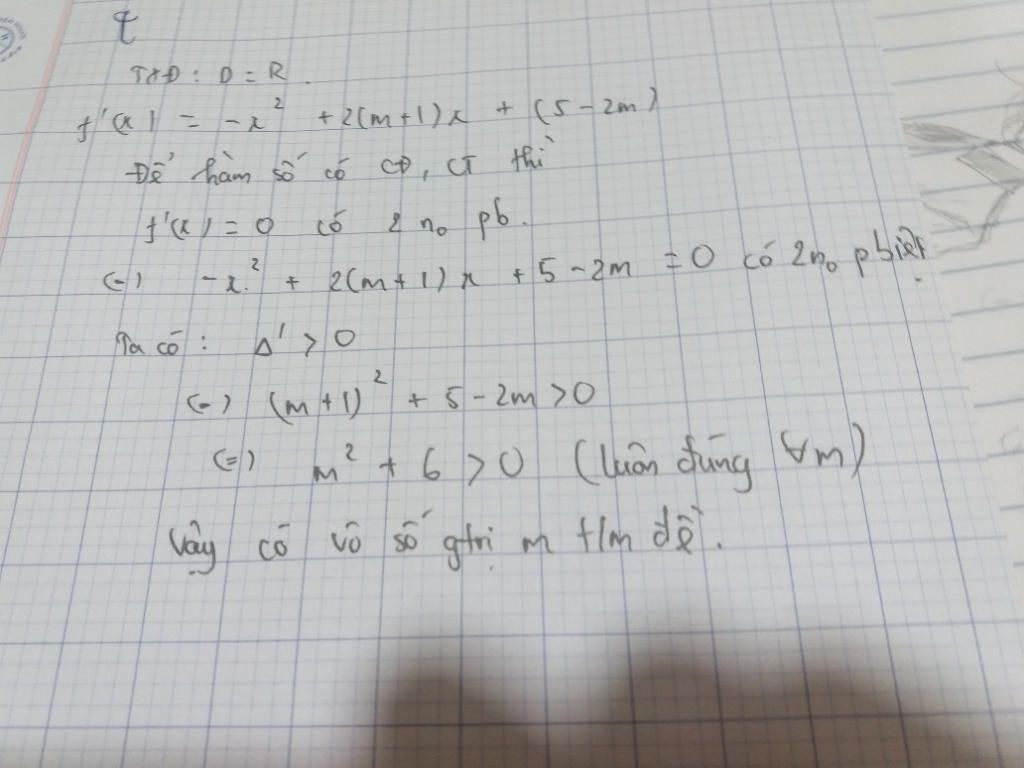 TXĐ: D = R.
f'(x) = -x² + 2(m+1)x + (5-2m)
Để hàm số có CĐ, CT thì
f'(x) = 0 có 2 n₀ pb.
(=) -x² + 2(m+1)x + 5-2m = 0 có 2n₀ pbiệt.
Ta có: Δ' > 0
(=) (m+1)² + 5-2m > 0
(=) m² + 6 > 0 (luôn đúng ∀m)
Vậy có vô số gtrị m t/m đề.